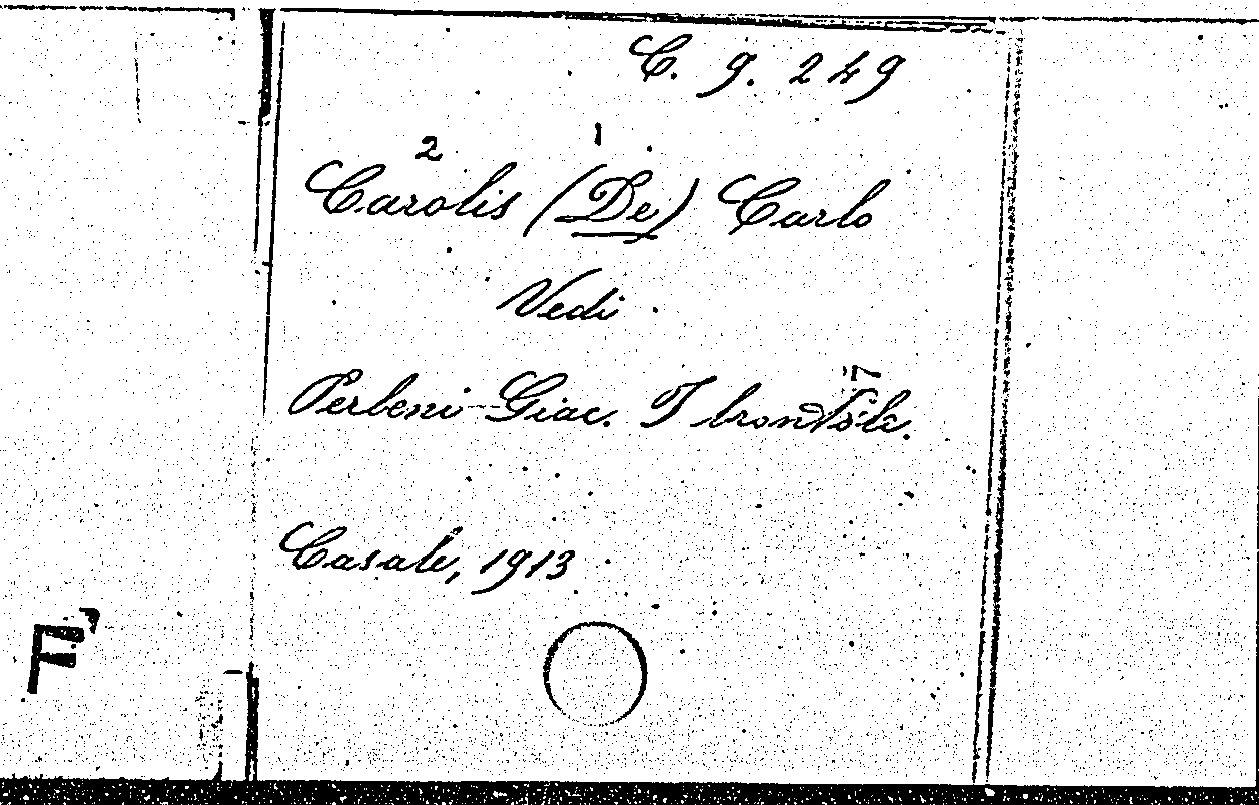 C. 9. 249
2 1
Carolis (De) Carlo
Vedi
Perbeni Giac. I
Casale, 1913
F